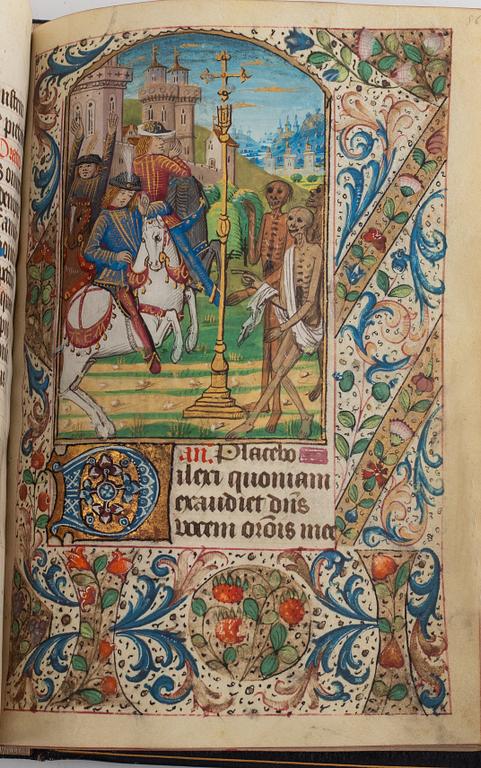 an. Placebo
ilexi quoniam
exaudiet dn̄s
vocem orōis mee